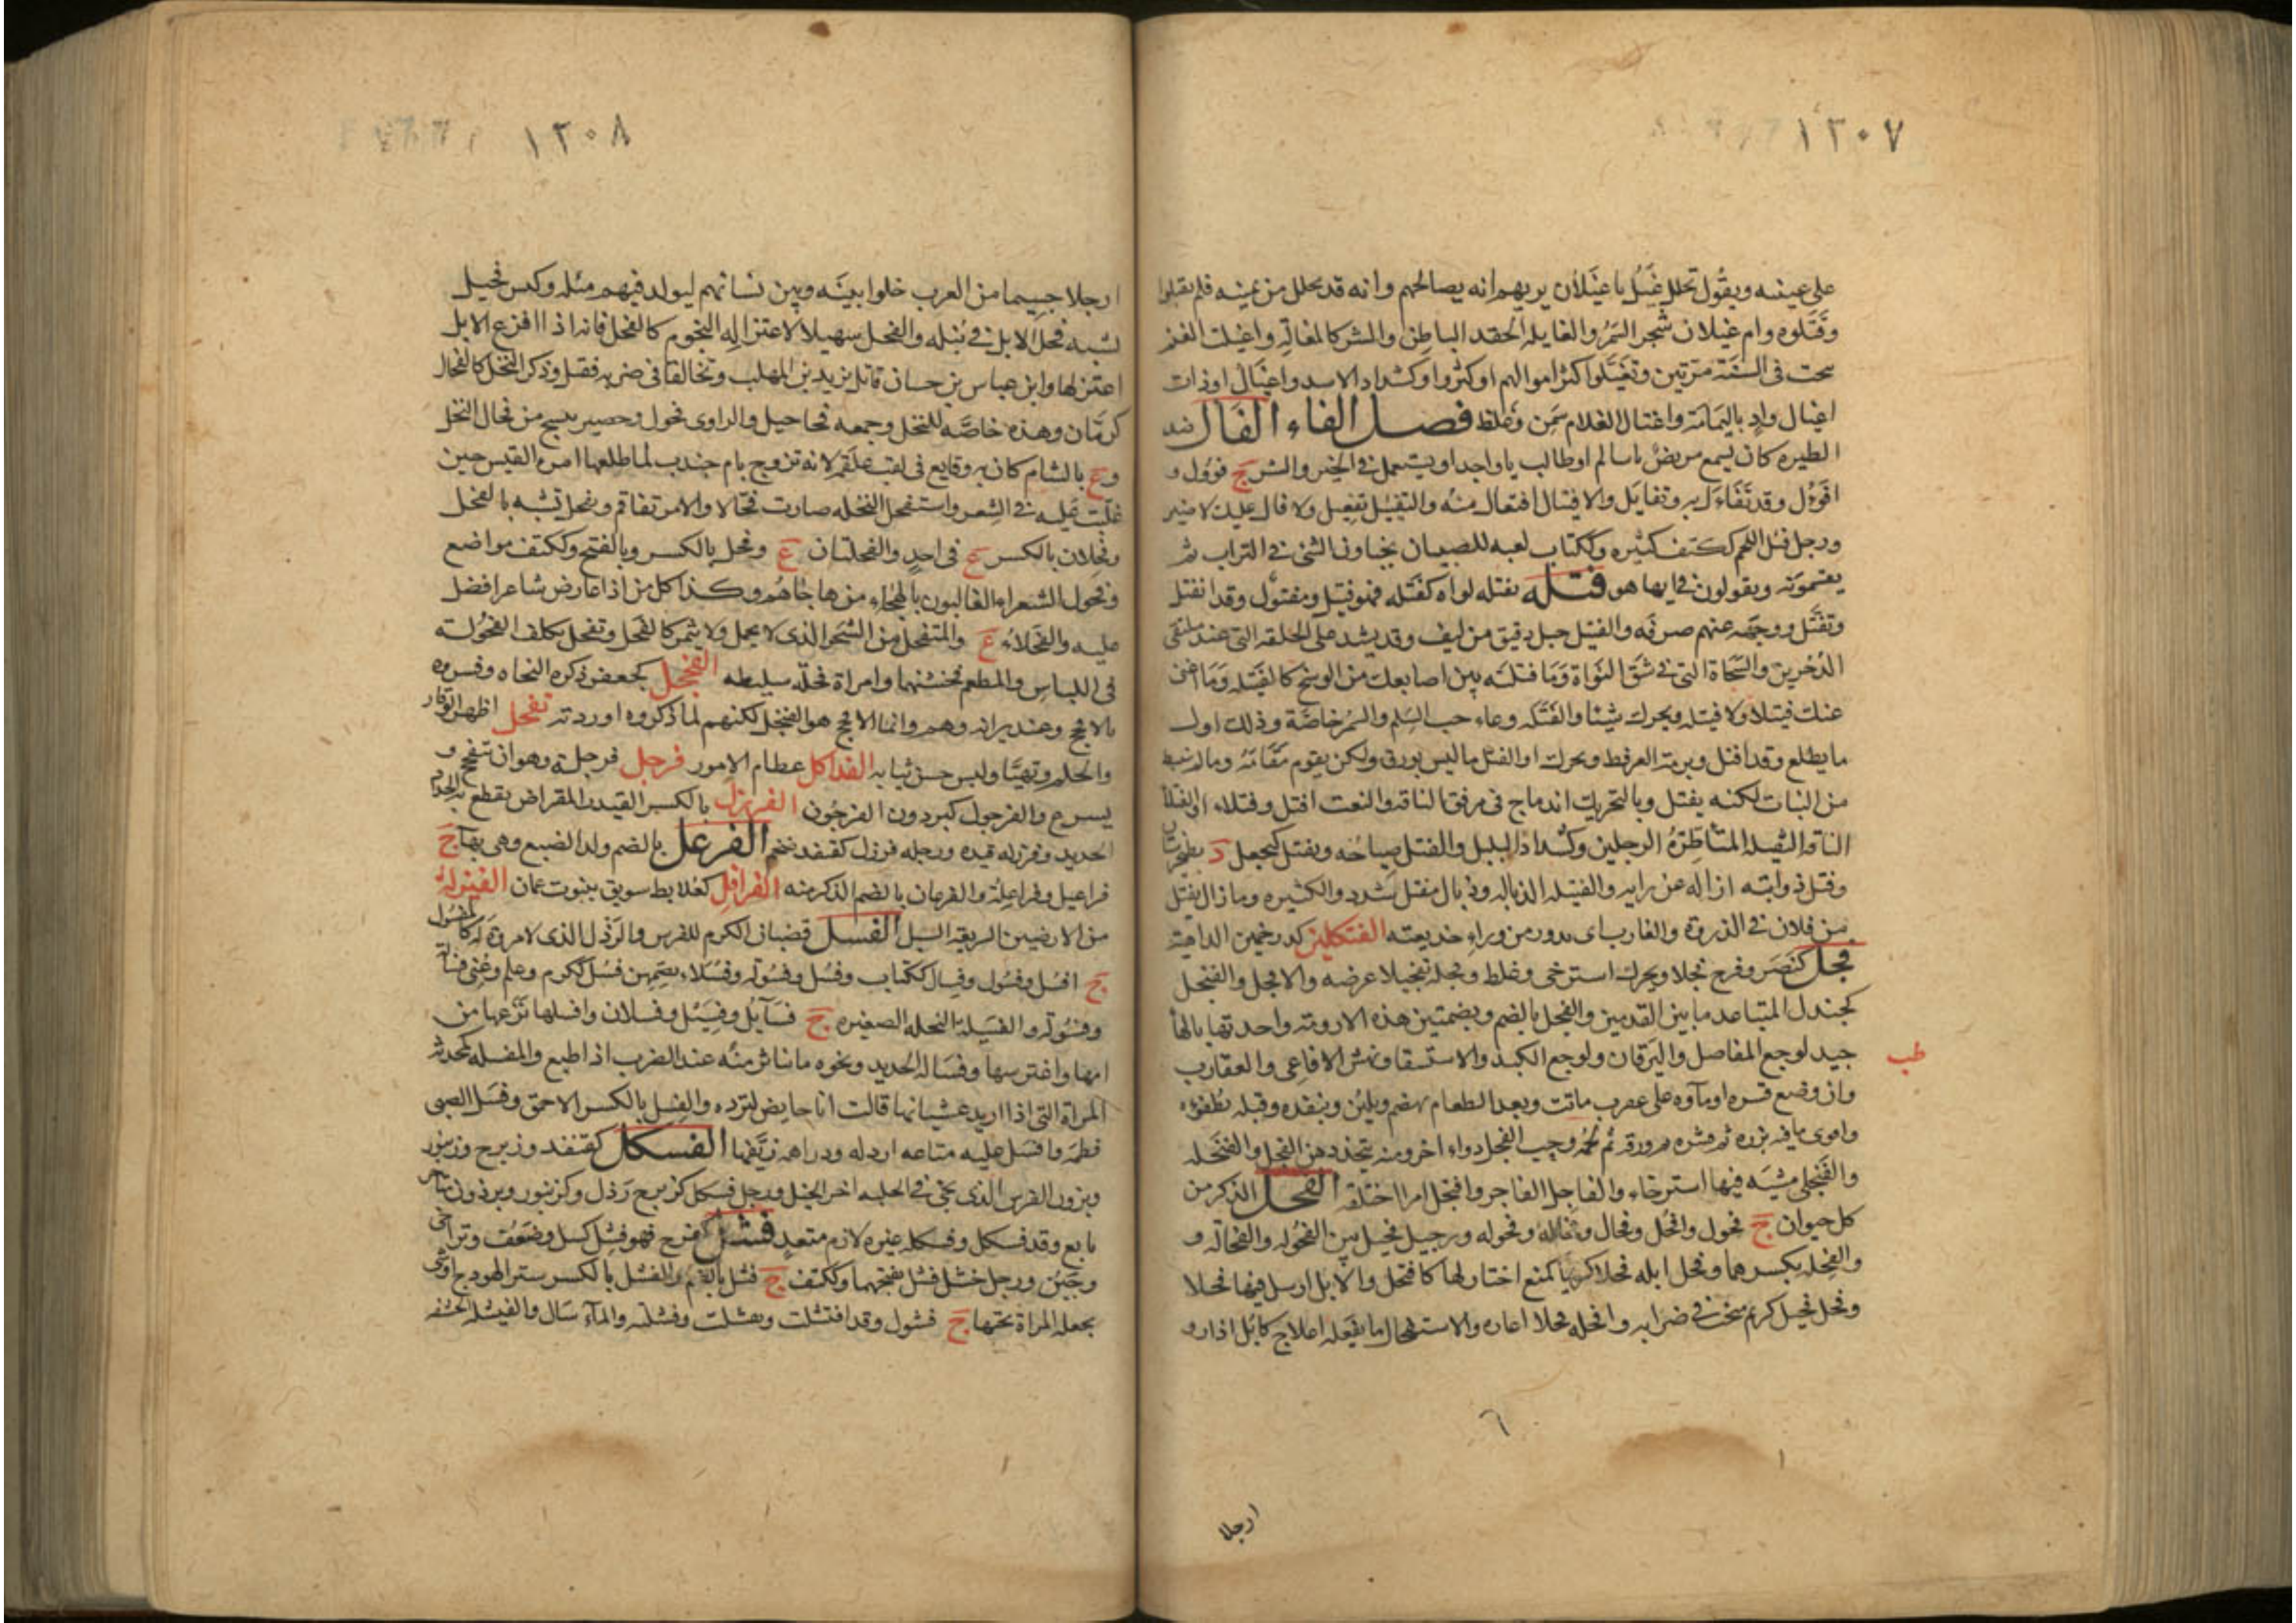 ١٣٠٧
على عينيه ويقول تحلل غيل يا غيلان يريهم انه يصالحهم وانه قد تحلل من يمينه فلم يقبلوا
وقتلوه وام غيلان شجر السمر والغايله الحقد الباطن والشر كالمغالة واغيلت الغنم
نتجت في السنة مرتين وتغيلوا كثر اموالهم او كثروا وكشداد الاسد واغيال او ذات
اغيال واد باليمامة واغتال الغلام سمن وغلظ فصل الفاء الفال ضد
الطيره كان يسمع مريض يا سالم او طالب يا واجد او يستعمل في الخير والشر ج فؤول و
افؤل وقد تفاءل به وتفايل والافتيال افتعال منه والتفييل تفعيل ولا فال عليك لا ضير
ورجل فئل اللحم ككتف كثيره وككتاب لعبه للصبيان يخباون الشئ في التراب ثم
يقتسمونه ويقولون في ايها هو فتله يفتله لواه كفتله فهو فتيل ومفتول وقد انفتل
وتفتل ووجهه عنهم صرفه والفتيل حبل دقيق من ليف وقد يشد على الحلقه التي عند ملتقى
الدخرين والسحاة التي في شق النواة وما فتلته بين اصابعك من الوسخ كالفتيله وما اغنى
عنك فتيلا ولا فتيله ويحرك شيئا والفتله وعاء حب السلم والسمر خاصة وذلك اول
ما يطلع وقد افتل وبرمة العرفط ويحرك او الفتل ما ليس بورق ولكن يقوم مقامه وما لم ينبسط
من النبات لكنه يفتل وبالتحريك اندماج في مرفق الناقه والنعت افتل وفتلاء او الفتلاء
الناقه الثقيله المتأطرة الرجلين وكشداد البلبل والفتل صياحه ويفتل كيجعل د بطخيرستان
وفتل ذوابته ازاله عن رايه والفتيله الذباله وذبال مفتل شدد للكثيره وما زال يفتل
من فلان في الذروة والغارب اى يدور من وراء خديعته الفتكلين كدرخمين الداهية
فجل كنصر وفرح فجلا ويحرك استرخى وغلظ وفجله تفجيلا عرضه والافجل والفنجل
كجندل المتباعد ما بين القدمين والفجل بالضم وبضمتين هذه الارومة واحدتها بالهاء
جيد لوجع المفاصل واليرقان ولوجع الكبد والاستسقا ونهش الافاعي والعقارب
طب
وان وضع قشره او ماؤه على عقرب ماتت وبعد الطعام يهضم ويلين وينفذه وقبله يطفؤه
واقوى ما فيه بزره ثم قشره ثم ورقه ثم لحمه وحب الفجل دواء اخر ومنه يتخذ دهن الفجل والفنجله
والفنجلى مشيه فيها استرخاء والفاجل القامر وافتجل امرا اختلقه الفحل الذكر من
كل حيوان ج فحول وافحل وفحال وفحاله وفحوله ورجيل فحيل بين الفحوله والفحاله و
والفحله بكسرهما وفحل ابله فحلا كريما كمنع اختار لها كافتحل والابل ارسل فيها فحلا
وفحل فحيل كريم منجب في ضرابه وافحله فحلا اعاره والاستفحال ما يفعله اعلاج كابل اذا راو
ارجلا
١٣٠٨
ارجلا جسيما من العرب خلوا بينه وبين نسائهم ليولد فيهم مثله وكبش فحيل
يشبه فحل الابل في نبله والفحل سهيل لاعتزاله النجوم كالفحل فانه اذا قرع الابل
اعتزلها وابن عباس بن حسان قاتل يزيد بن المهلب وتخالفا في ضربه فقتل وذكر النخل كالفحال
كرمان وهذه خاصه للنخل وجمعه فحاحيل والراوى فحول وحصير ينسج من فحال النخل
وع بالشام كان به وقايع في لقب علقمه لانه تزوج بام جندب لما طلقها امرء القيس حين
غلبت عليه في الشعر واستفحل النخله صارت فحالا والامر تفاقم وتفحل تشبه بالفحل
وفحلان بالكسر ع في احد والفحلتان ع وفحل بالكسر وبالفتح وككتف مواضع
وفحول الشعراء الغالبون بالهجاء من هاجاهم وكذا كل من اذا عارض شاعرا فضل
عليه والفحلاء ع والمتفحل من الشجر الذى لا يحمل ولا يثمر كالفحل وتفحل تكلف الفحوله
في اللباس والمطعم فخشنهما وامراة فحله سليطه الفنجل كجعفر ذكره النحاه وفسروه
بالافحج وعندى انه وهم وانما الافحج هو الفنجل لكنهم لما ذكروه اوردته تفحل اظهر الوقار
والحلم وتهيا ولبس حسن ثيابه الفداكل عظام الامور فرجل فرجلة وهو ان تتفحج و
يسرع والفرجول كبرذون الفرجون الفرزل بالكسر القيد والمقراض يقطع به الحداد
الحديد وفرزله قيده ورجله فرزل كقنفذ ضخم الفرعل بالضم ولد الضبع وهى بهاء ج
فراعيل وفراعلة والفرعلان بالضم الذكر منه الفرافل كعلابط سويق ينبوت عمان الفيزله
من الارضين السريعه السيل الفسل قضبان الكرم للغرس والرذل الذى لا مروة له كالمفسول
ج افسل وفسول وفسال ككتاب وفسل وفسولة وفسلاء بضمهن فسل ككرم وعلم وعنى فسالة
وفسولة والفسيلة النخله الصغيره ج فسائل وفسيل وفسلان وافسلها نزعها من
امها واغترسها وفسالة الحديد ونحوه ما تناثر منه عند الضرب اذا طبع والمفسله كمحدثه
المراة التي اذا اريد غشيانها قالت انا حايض لترده والفسل بالكسر الاحمق وفسل الصبى
فطمه وافسل عليه متاعه ارذله ودراهمه زيفها الفسكل كقنفذ وزبرج وزنبور
وبرذون الفرس الذى يجئ في الحلبه اخر الخيل ورجل فسكل كزبرج رذل وكزنبور وبرذون متاخر
تابع وقد فسكل وفسكله غيره لازم متعد فشل كفرح فهو فشل كسل وضعف وتراخى
وجبن ورجل خشل فشل بفتحهما وككتف ج فشل بالضم والفشل بالكسر ستر الهودج او شئ
تجعله المراة تحتها ج فشول وقد افتشلت وفشلت وتفشلته والماء سال والفيشله الحشفه